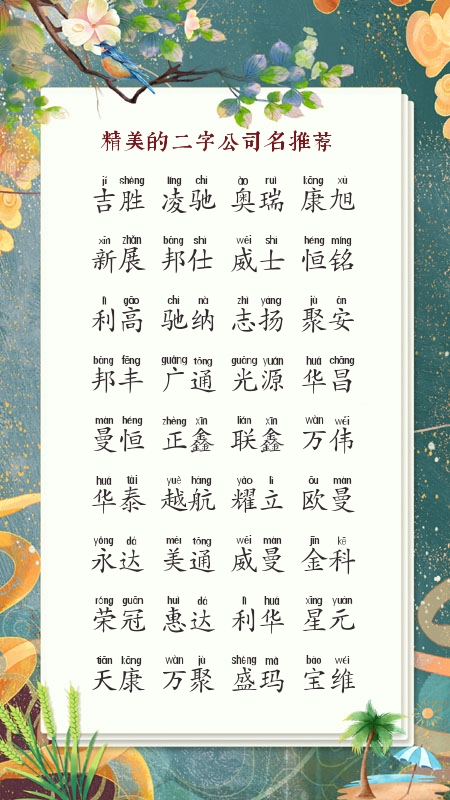 精美的二字公司名推荐
jí shèng líng chí ào ruì kāng xù
吉胜 凌驰 奥瑞 康旭
xīn zhǎn bāng shì wēi shì héng míng
新展 邦仕 威士 恒铭
lì gāo chí nà zhì yáng jù ān
利高 驰纳 志扬 聚安
bāng fēng guǎng tōng guāng yuán huá chāng
邦丰 广通 光源 华昌
màn héng zhèng xīn lián xīn wàn wěi
曼恒 正鑫 联鑫 万伟
huá tài yuè háng yào lì ōu màn
华泰 越航 耀立 欧曼
yǒng dá měi tōng wēi màn jīn kē
永达 美通 威曼 金科
róng guān huì dá lì huá xīng yuán
荣冠 惠达 利华 星元
tiān kāng wàn jù shèng mǎ bǎo wéi
天康 万聚 盛玛 宝维